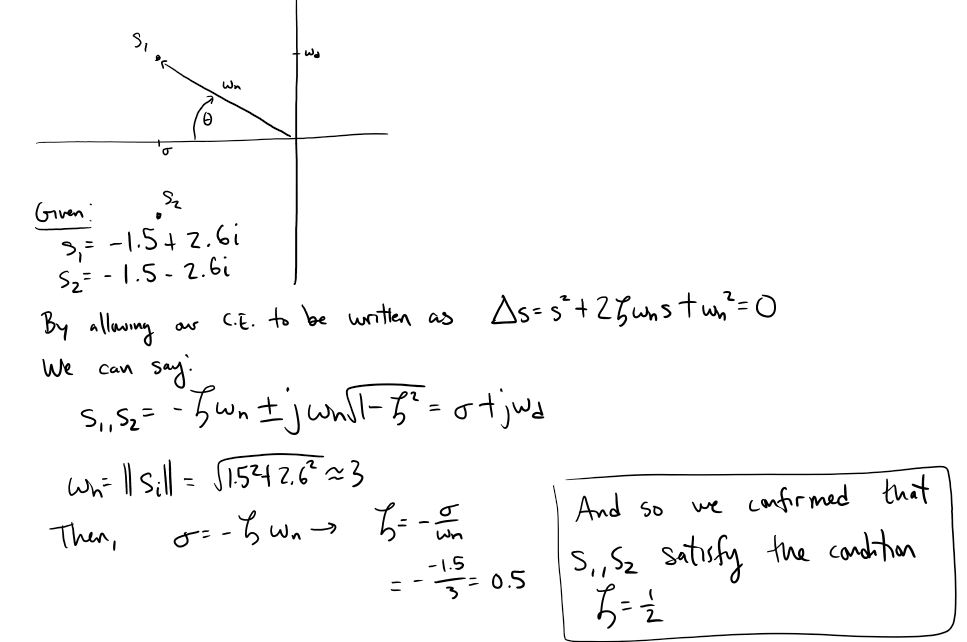 S₁
ω_d
ω_n
θ
σ
S₂
Given:
S₁ = -1.5 + 2.6i
S₂ = -1.5 - 2.6i
By allowing our C.E. to be written as Δs = s² + 2ζω_n s + ω_n² = 0
We can say:
S₁, S₂ = -ζω_n ± jω_n√(1-ζ²) = σ + jω_d
ω_n = ||S_i|| = √(1.5² + 2.6²) ≈ 3
Then, σ = -ζω_n → ζ = -σ/ω_n
= - -1.5/3 = 0.5
And so we confirmed that
S₁, S₂ satisfy the condition
ζ = 1/2